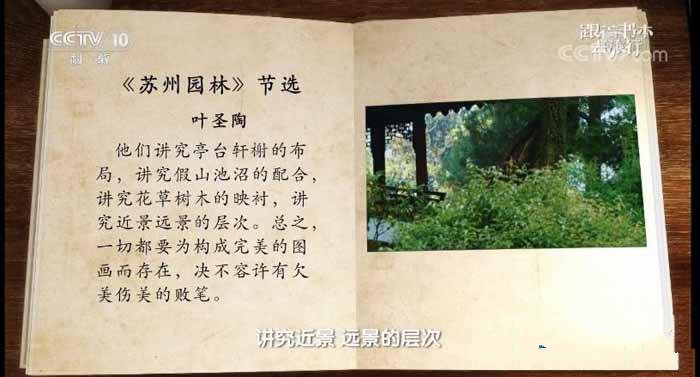 CCTV 10
科教
跟着书本
去旅行
CCTV.com
《苏州园林》节选
叶圣陶
他们讲究亭台轩榭的布
局，讲究假山池沼的配合，
讲究花草树木的映衬，讲
究近景远景的层次。总之，
一切都要为构成完美的图
画而存在，决不容许有欠
美伤美的败笔。
讲究近景 远景的层次